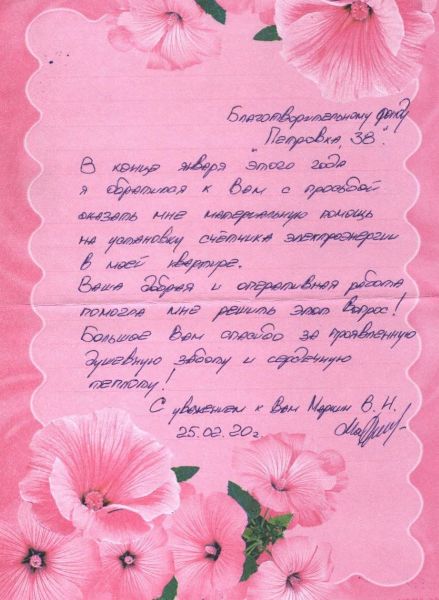 Благотворительному фонду
"Петровка, 38".
В конце января этого года
я обратился к Вам с просьбой
оказать мне материальную помощь
на установку счётчика электроэнергии
в моей квартире.
Ваша добрая и оперативная работа
помогла мне решить этот вопрос!
Большое Вам спасибо за проявленную
душевную заботу и сердечную
теплоту!
С уважением к Вам Маркин В. Н.
25.02.20г.